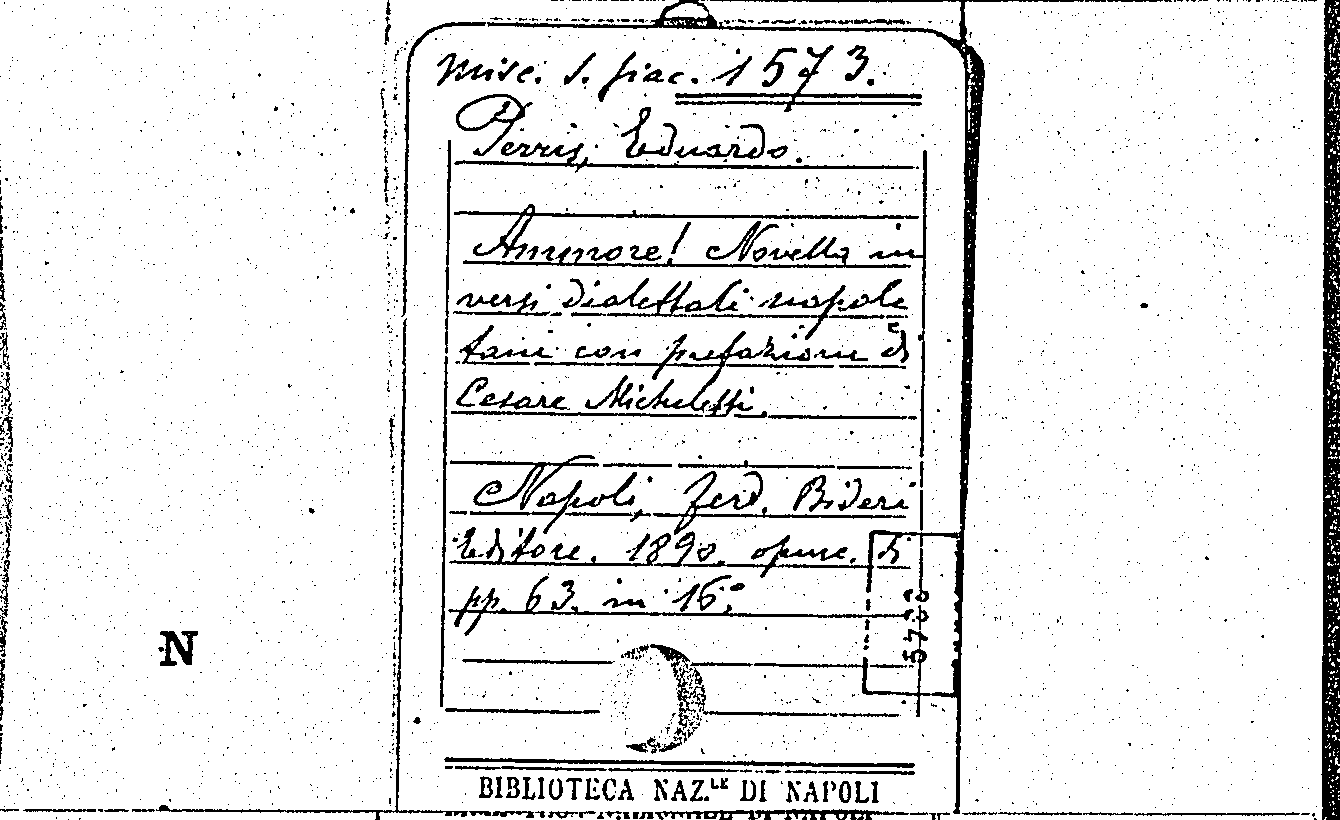 Misc. S. Giac. 1573.
Perris, Eduardo.
Ammore! Novella in
versi dialettali napole
tani con prefazione di
Cesare Micheletti.
Napoli, Ferd. Bideri
Editore. 1890. opusc. di
pp. 63. in 16°
N
BIBLIOTECA NAZ.LE DI NAPOLI